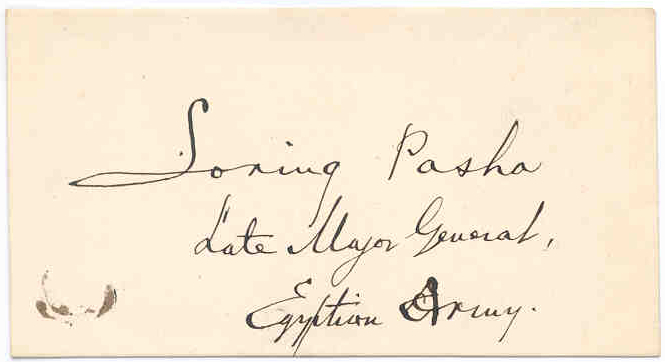 Loring Pasha
Late Major General,
Egyptian Army.